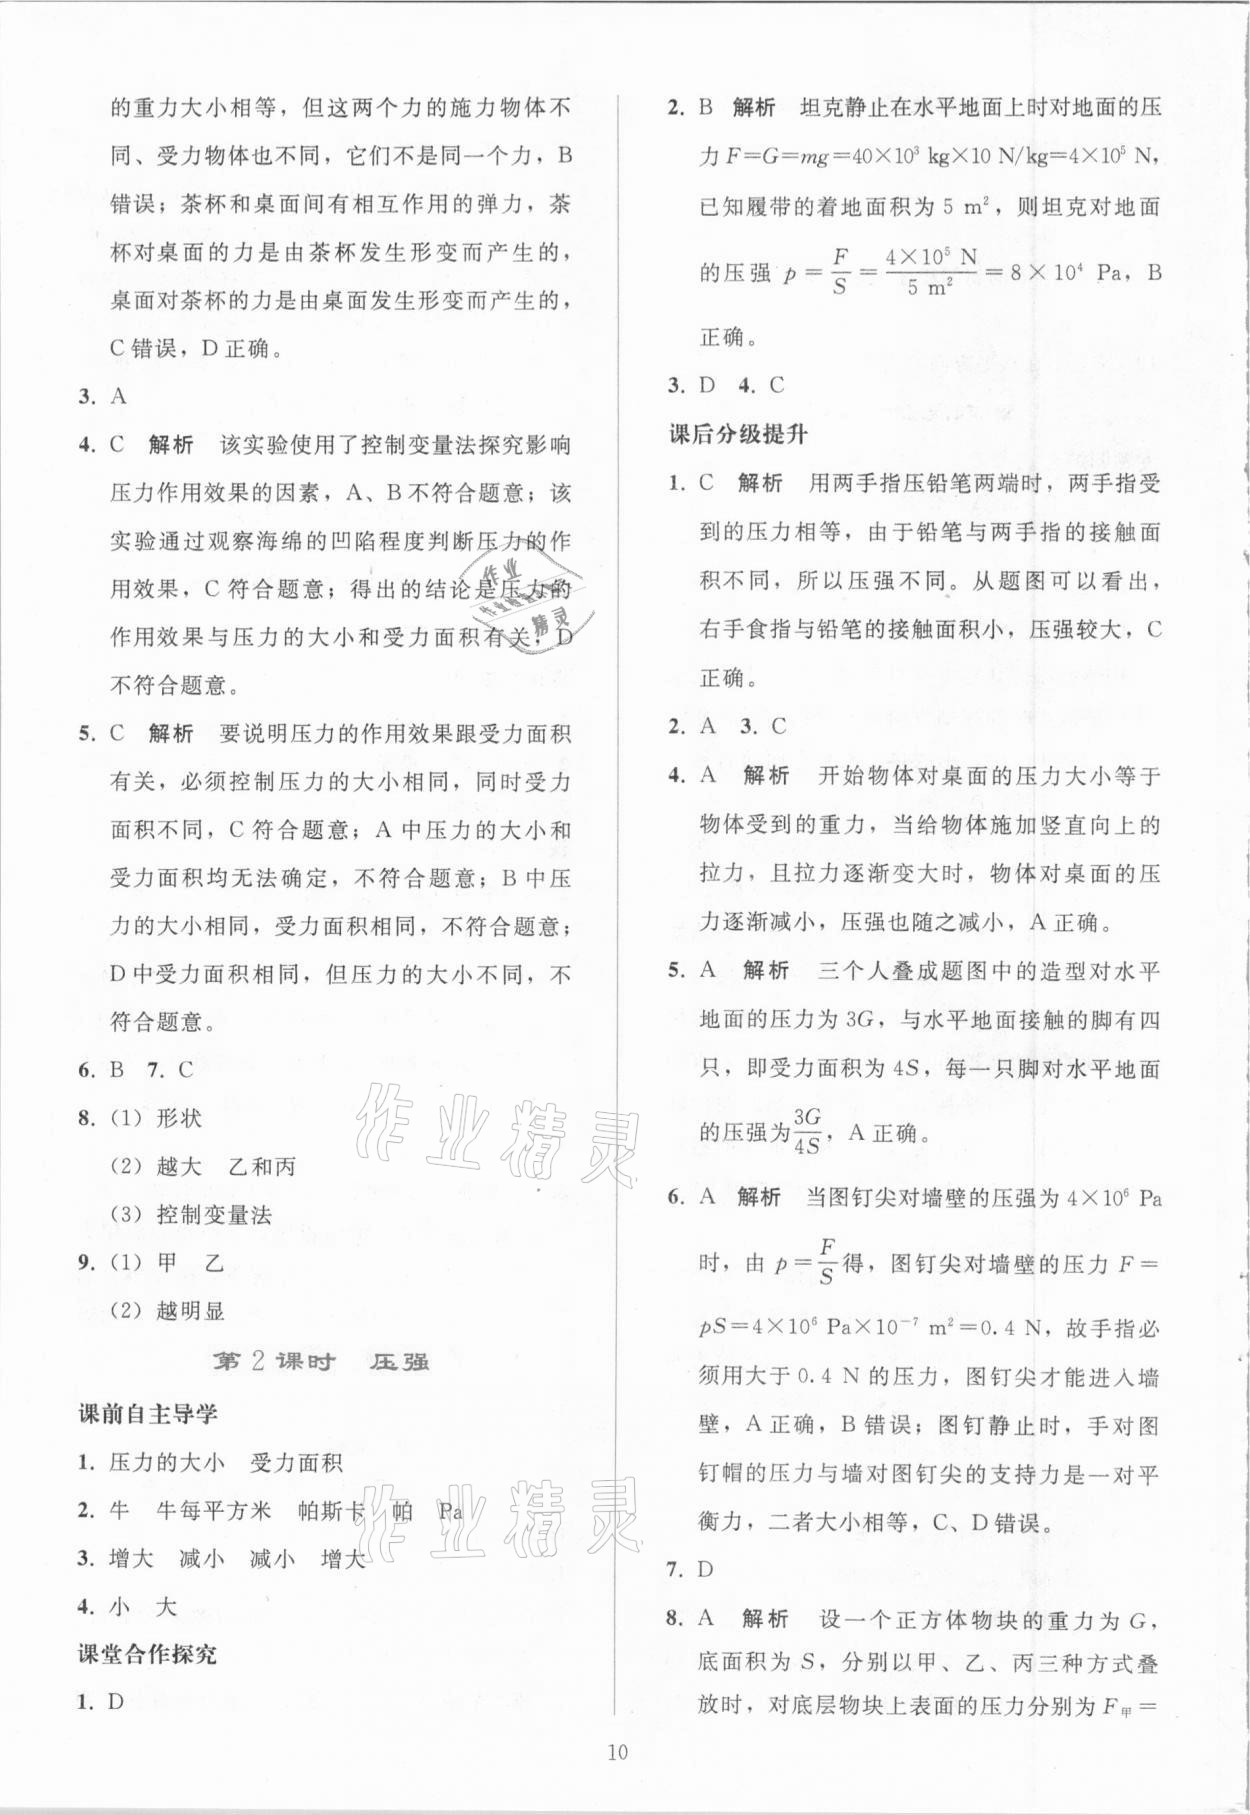 的重力大小相等，但这两个力的施力物体不
同、受力物体也不同，它们不是同一个力，B
错误；茶杯和桌面间有相互作用的弹力，茶
杯对桌面的力是由茶杯发生形变而产生的，
桌面对茶杯的力是由桌面发生形变而产生的，
C错误，D正确。
3. A
4. C 解析 该实验使用了控制变量法探究影响
压力作用效果的因素，A、B不符合题意；该
实验通过观察海绵的凹陷程度判断压力的作
用效果，C符合题意；得出的结论是压力的
作用效果与压力的大小和受力面积有关，D
不符合题意。
5. C 解析 要说明压力的作用效果跟受力面积
有关，必须控制压力的大小相同，同时受力
面积不同，C符合题意；A中压力的大小和
受力面积均无法确定，不符合题意；B中压
力的大小相同，受力面积相同，不符合题意；
D中受力面积相同，但压力的大小不同，不
符合题意。
6. B 7. C
8. (1) 形状
(2) 越大 乙和丙
(3) 控制变量法
9. (1) 甲 乙
(2) 越明显
第2课时 压强
课前自主导学
1. 压力的大小 受力面积
2. 牛 牛每平方米 帕斯卡 帕 Pa
3. 增大 减小 减小 增大
4. 小 大
课堂合作探究
1. D
2. B 解析 坦克静止在水平地面上时对地面的压
力F=G=mg=40×10³ kg×10 N/kg=4×10⁵ N，
已知履带的着地面积为 5 m²，则坦克对地面
的压强 p=F/S=4×10⁵ N/5 m²=8×10⁴ Pa，B
正确。
3. D 4. C
课后分级提升
1. C 解析 用两手指压铅笔两端时，两手指受
到的压力相等，由于铅笔与两手指的接触面
积不同，所以压强不同。从题图可以看出，
右手食指与铅笔的接触面积小，压强较大，C
正确。
2. A 3. C
4. A 解析 开始物体对桌面的压力大小等于
物体受到的重力，当给物体施加竖直向上的
拉力，且拉力逐渐变大时，物体对桌面的压
力逐渐减小，压强也随之减小，A正确。
5. A 解析 三个人叠成题图中的造型对水平
地面的压力为3G，与水平地面接触的脚有四
只，即受力面积为4S，每一只脚对水平地面
的压强为3G/4S，A正确。
6. A 解析 当图钉尖对墙壁的压强为4×10⁶ Pa
时，由 p=F/S得，图钉尖对墙壁的压力 F=
pS=4×10⁶ Pa×10⁻⁷ m²=0.4 N，故手指必
须用大于0.4 N的压力，图钉尖才能进入墙
壁，A正确，B错误；图钉静止时，手对图
钉帽的压力与墙对图钉尖的支持力是一对平
衡力，二者大小相等，C、D错误。
7. D
8. A 解析 设一个正方体物块的重力为G，
底面积为S，分别以甲、乙、丙三种方式叠
放时，对底层物块上表面的压力分别为F甲=
10
作业精灵
作业精灵
作业
精灵